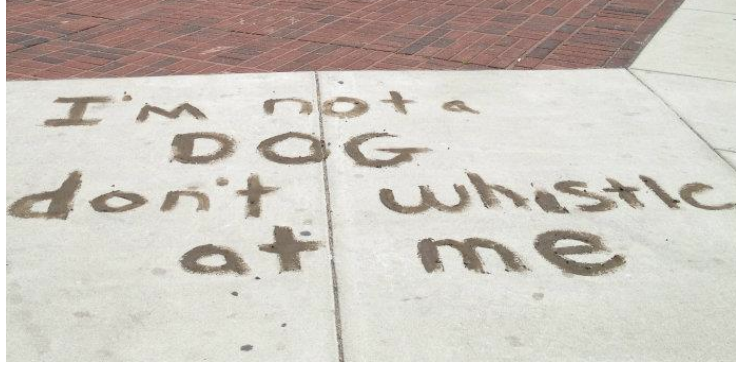 I'm not a
DOG
don't whistle
at me